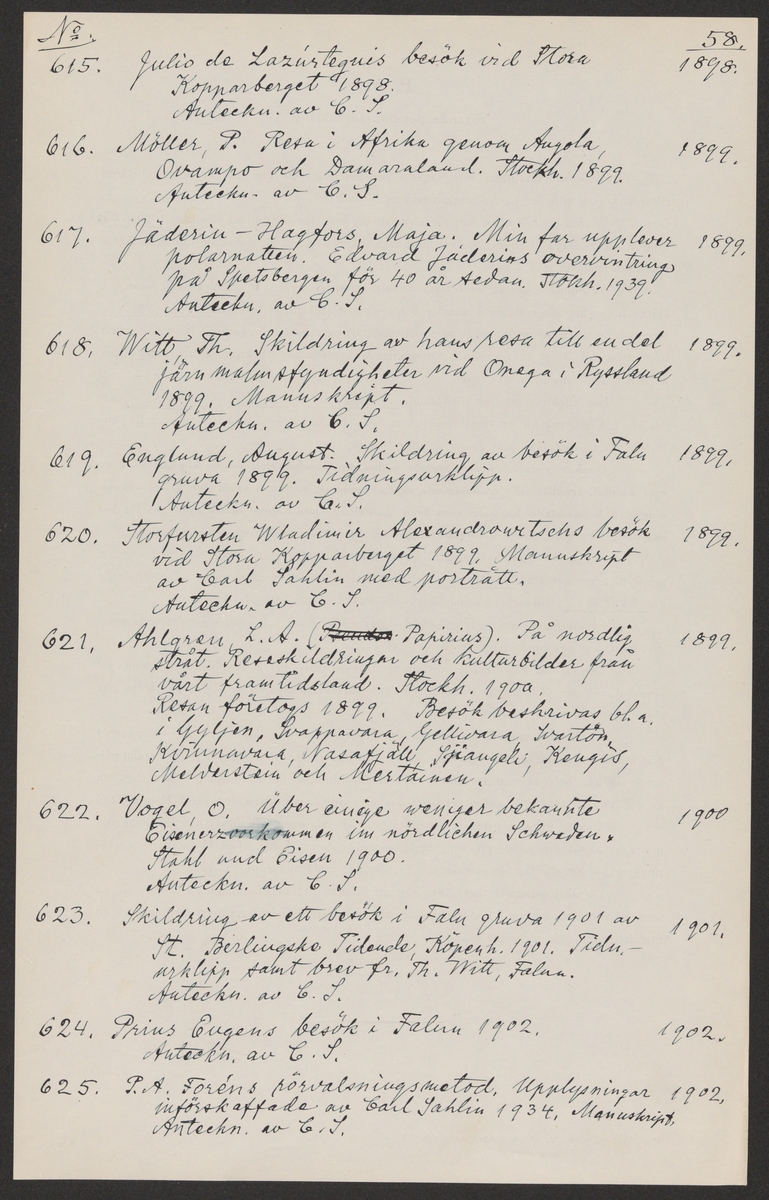 No. 58.
615. Julio de Lazúrtequis besök vid Stora 1898.
Kopparberget 1898.
Anteckn. av C. S.
616. Möller, P. Resa i Afrika genom Angola, 1899.
Ovampo och Damaraland. Stockh. 1899.
Anteckn. av C. S.
617. Jäderin-Hagfors, Maja. Min far upplever 1899.
polarnatten. Edvard Jäderins övervintring
på Spetsbergen för 40 år sedan. Stokh. 1939.
Anteckn. av C. S.
618. Witt, Th. Skildring av hans resa till en del 1899.
järnmalmsfyndigheter vid Onega i Ryssland
1899. Manuskript.
Anteckn. av C. S.
619. Englund, August. Skildring av besök i Falu 1899.
gruva 1899. Tidningsurklipp.
Anteckn. av C. S.
620. Storfursten Wladimir Alexandrowitschs besök 1899.
vid Stora Kopparberget 1899. Manuskript
av Carl Sahlin med porträtt.
Anteckn. av C. S.
621. Ahlgren, L. A. (Papirius). På nordlig 1899.
stråt. Reseskildringar och kulturbilder från
vårt framtidsland. Stockh. 1900.
Resan företogs 1899. Besök beskrivas bl. a.
i Gyljen, Svappavara, Gellivara, Svartön,
Kvinnavara, Nasafjäll, Sjangeli, Kengis,
Melderstein och Mertainen.
622. Vogel, O. Über einige weniger bekannte 1900
Eisenerzvorkommen im nördlichen Schweden.
Stahl und Eisen 1900.
Anteckn. av C. S.
623. Skildring av ett besök i Falu gruva 1901 av 1901.
St. Berlingske Tidende, Köpenh. 1901. Tidn.-
urklipp samt brev fr. Th. Witt, Falun.
Anteckn. av C. S.
624. Prins Eugens besök i Falun 1902. 1902.
Anteckn. av C. S.
625. P. A. Foréns rörvalsningsmetod. Upplysningar 1902.
införskaffade av Carl Sahlin 1934. Manuskript.
Anteckn. av C. S.